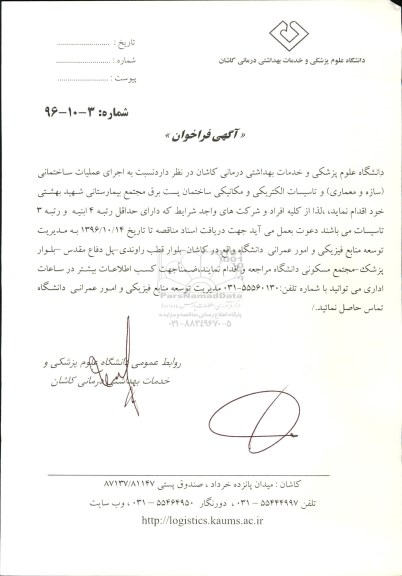 دانشگاه علوم پزشکی و خدمات بهداشتی درمانی کاشان
تاریخ :
شماره :
پیوست :
شماره: ۳-۱۰-۹۶
«آگهی فراخوان»
دانشگاه علوم پزشکی و خدمات بهداشتی درمانی کاشان در نظر داردنسبت به اجرای عملیات ساختمانی
(سازه و معماری) و تاسیسات الکتریکی و مکانیکی ساختمان پست برق مجتمع بیمارستانی شهید بهشتی
خود اقدام نماید، لذا از کلیه افراد و شرکت های واجد شرایط که دارای حداقل رتبه ۴ ابنیه و رتبه ۳
تاسیسات می باشند دعوت بعمل می آید جهت دریافت اسناد مناقصه تا تاریخ ۱۳۹۶/۱۰/۱۴ به مدیریت
توسعه منابع فیزیکی و امور عمرانی دانشگاه واقع در کاشان-بلوار قطب راوندی-پل دفاع مقدس -بلوار
پزشک-مجتمع مسکونی دانشگاه مراجعه و اقدام نمایند،ضمناجهت کسب اطلاعات بیشتر در ساعات
اداری می توانید با شماره تلفن:۵۵۵۶۰۱۳۰-۰۳۱ مدیریت توسعه منابع فیزیکی و امور عمرانی دانشگاه
تماس حاصل نمائید./
ParsNamadData
۰۲۱-۸۸۳۴۹۶۷۰-۵
روابط عمومی دانشگاه علوم پزشکی و
خدمات بهداشتی درمانی کاشان
کاشان : میدان پانزده خرداد ، صندوق پستی ۸۷۱۳۷/۸۱۱۴۷
تلفن ۵۵۴۴۴۹۹۷ - ۰۳۱ ، دورنگار ۵۵۴۶۴۹۵۰ - ۰۳۱ ، وب سایت
http://logistics.kaums.ac.ir